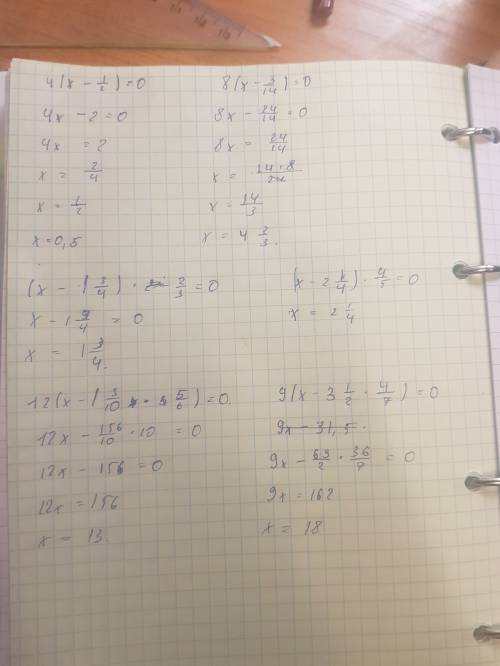 4(x - 1/2) = 0
4x - 2 = 0
4x = 2
x = 2/4
x = 1/2
x = 0,5
8(x - 3/14) = 0
8x - 24/14 = 0
8x = 24/14
x = 14·8/24
x = 14/3
x = 4 2/3.
(x - 1 3/4) · 2/3 = 0
x - 1 9/4 = 0
x = 1 3/4.
(x - 2 1/4) · 4/5 = 0
x = 2 1/4
12(x - 1 3/10 · 5/6) = 0.
12x - 156/10 · 10 = 0
12x - 156 = 0
12x = 156
x = 13.
9(x - 3 1/2 · 4/7) = 0
9x - 31,5.
9x - 63/2 · 36/7 = 0
9x = 162
x = 18